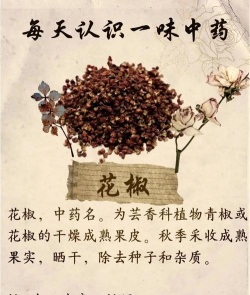 每天认识一味中药
花椒
花椒，中药名。为芸香科植物青椒或
花椒的干燥成熟果皮。秋季采收成熟
果实，晒干，除去种子和杂质。